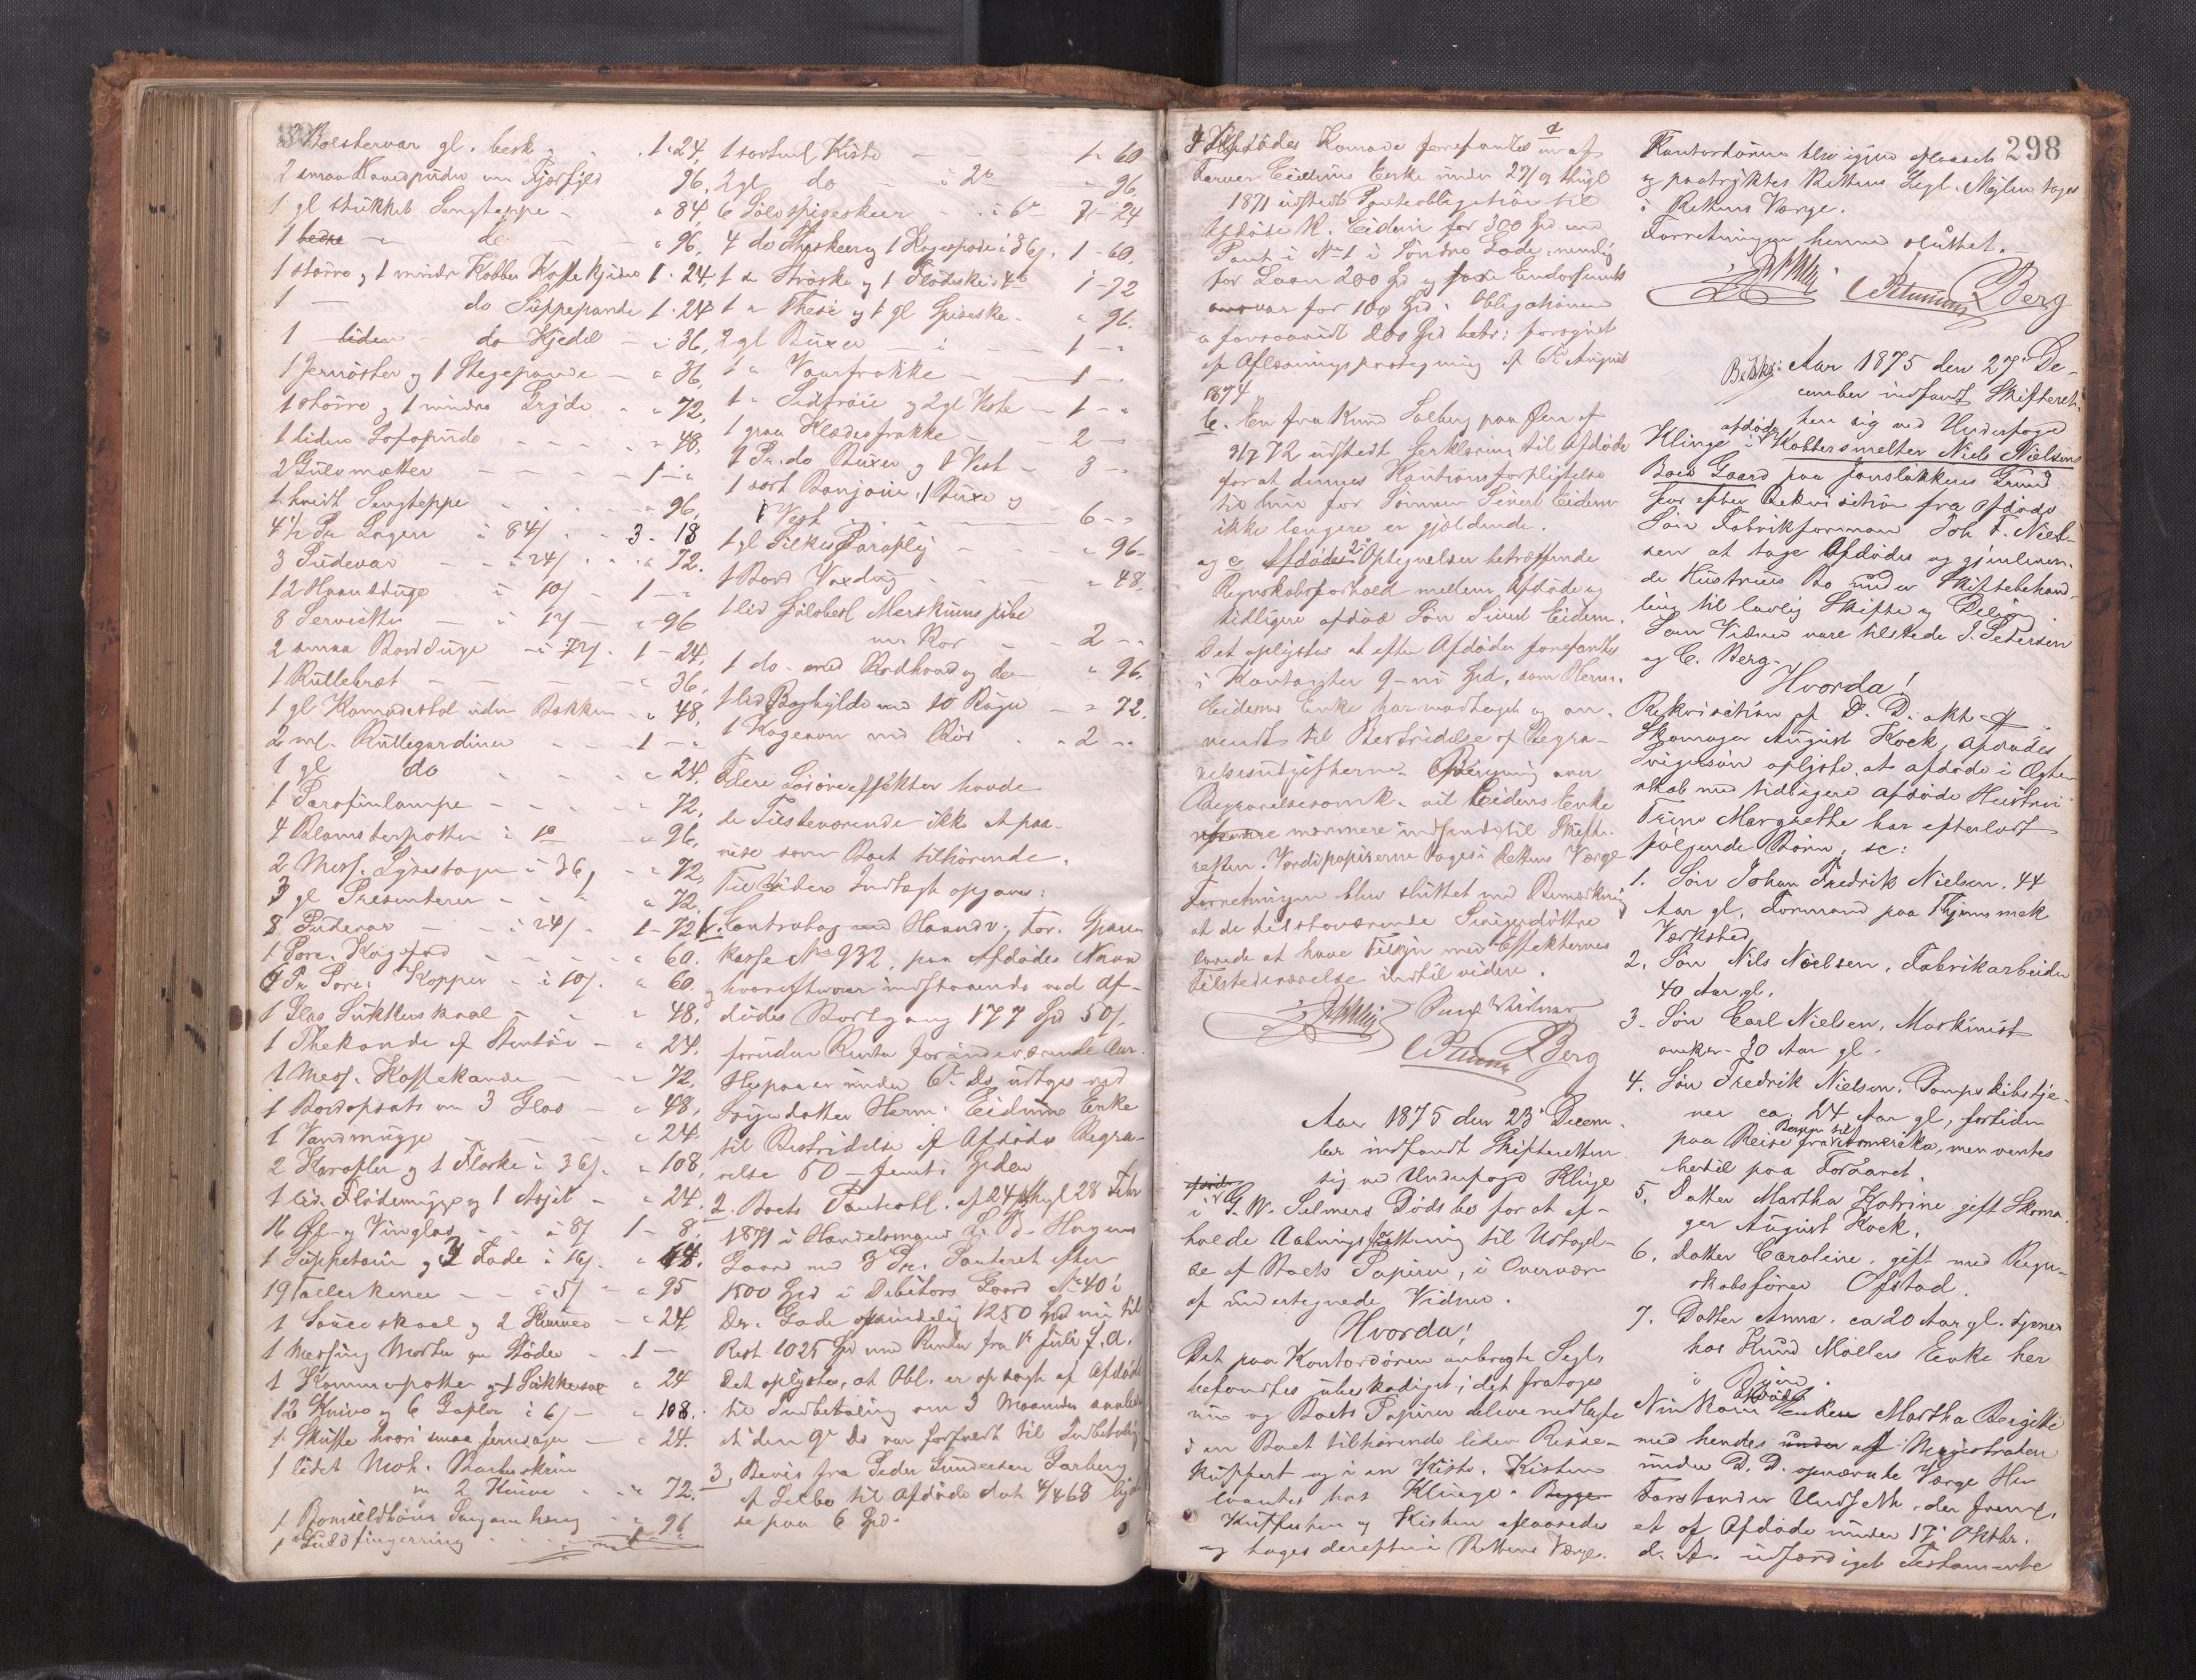 3 Bolstervar gl. besk. 1-24.
2 smaa Hovedpuder m Fjærfyld 96.
1 gl stukket Sengteppe - " 84.
1 do " 96.
1 større og 1 mindre Kobber Kaffekjedel 1-24.
1 — do Suppepande 1-24
1 liden do Kjedel - " 36.
1 Jernøster og 1 Stegepande - " 36.
1 større og 1 mindre Gryde " 72.
1 liden Sofapude " 48.
2 Gulvmatter 1 - "
1 hvidt Sengteppe " 96.
4 1/2 Par Lagen à 84/ 3-18
3 Pudevar à 24/ " 72.
12 Haandduge à 10/ 1 - "
8 Servietter à 12/ " 96
2 smaa Bordduge à 72/ 1-24.
1 Rullebræt " 36.
1 gl Komodestol uden Bakken " 48.
2 Rullegardiner 1 - "
1 gl do " 24.
1 Parafinlampe " 72.
4 Blomsterpotter à 1 " 96.
2 Mess. Lysestager à 36/ " 72.
3 gl Presenterer " 72.
8 Pudevar à 24/ 1-72
1 Porc. Kagefad " 60.
6 Pr Porc. Kopper à 10/ " 60.
1 Glas Sukkerskaal " 48.
1 Thekande af Stentøi " 24.
1 Mess. Kaffekande " 72.
1 Bordopsats m 3 Glas " 48.
1 Vandmugge " 24.
2 Karafler og 1 Flaske à 36/ " 108.
1 lid. Flødemugge og 1 Asjet " 24.
16 Øl- og Vinglas à 8/ 1-8.
1 Suppeterin og 3 Fade à 16/ " 64.
19 Tallerkener à 5/ " 95
1 Sauceskaal og 2 " 24
1 Messing Morter m Støder 1 -
1 og 1 Sukker " 24
12 Knive og 6 Gafler à 6/ " 108.
1 Skuffe hvori smaa Jernsager " 24.
1 lidet Mah. Barberskrin
m 2 Knive " 72.
1 " 96
1 Guldfingerring
1 Kiste 1-60
2 gl do à 2 " 96
6 Sølvspiseskeer à 6 - 24
4 do Theskeer og 1 Kagespade à 36/ 1-60.
1 do Strøske og 1 Flødeske à 4 1-72
1 " Thesi og 1 gl Spiseske " 96.
2 gl Buxer 1 - "
1 " Vaarfrakke 1 - "
1 " og 2 gl Veste 1 - "
1 graa Klædesfrakke 2 - "
1 Pr. do Buxer og 1 Vest 3 - "
1 sort Bonjour, 1 Buxe og
1 Vest 6 - "
1 gl Silkeparaply " 96-
1 Bord Voxdug " 48.
1 lid Sølvbesl Merskumspibe
m Rør 2 - "
1 do med Rodhoved og do " 96.
1 lid Boghylde med 10 Bøger " 72.
1 Kogeovn med Rør 2 - "
Flere Løsøreeffekter havde
de Tilstedeværende ikke at paa-
vise som Boet tilhørende.
Til videre Indtægt opgaves:
1. Contrabog med Haandv. For. Spare
kasse No 932, paa Afdødes Navn
hvorefter var indstaaende ved Af-
dødes Bortgang 177 Spd 50/
foruden Renter for indeværende Aar.
Herpaa er under 6te ds udtaget ved
Svigerdatter Herm: Eidems Enke
til Bestridelse af Afdødes Begra-
velse 50 - femti Spdlr
2. Boets Panteobl. af 24 thgl 28 Febr
1871 i Handelsmand L. B. Hagens
Gaard med 3 Pr. Panteret efter
1500 Spd i Debitors Gaard No 40 i
Dr. Gade oprindelig 1250 Spd nu til
Rest 1025 Spd med Renter fra 1 Juli d. A.
Det oplystes, at Obl. er opsagt af Afdøde
til Indbetaling om 3 Maaneder
3. Bevis fra Peder Gundersen Garberg
af Selbo til Afdøde dat 4/4 68
paa 6 Spd.
I Afdødes Komode forefantes en af
Farver Eidems Enke under 27/9 thgl
1871 udstedt Panteobligation til
Afdøde N. Eidem for 300 Spd med
Pant i No 1 i Søndre Gade, nemlig
for Laan 200 Spd og for Endossements
ansvar for 100 Spd. Obligationen
er forsaavidt 200 Spd betr. forsynet
m Aflæsningspaategning af 6te August
1874
b. En fra Knud Solberg paa Øen af
9/7 72 udstedt Erklæring til Afdøde
for at dennes Kautionsforpligtelse
til ham for Sønnen Sivert Eidem
ikke længere er gjældende.
og c. Afdødes Optegnelser betræffende
Regnskabsforhold mellem Afdøde og
tidligere afdøde Søn Sivert Eidem.
Det oplystes at efter Afdøde forefantes
i Kontanter 9 - ni Spd, som Herm.
Eidems Enke har modtaget og an-
vendt til Bestridelse af Begra-
velsesudgifterne. Opregning over
Begravelsesomk. vil Eidems Enke
nærmere indsende til Skifte-
retten. Værdipapirerne tages i Rettens Værge
Forretningen blev sluttet med Bemærkning
at de tilstedeværende Svigerdøttre
lovede at have Tilsyn med Effekternes
Tilstedeværelse indtil videre.
Berg
Aar 1875 den 23 Decem-
ber indfandt Skifteretten
sig ved Underfoged Klinge
i G. W. Selmers Dødsbo for at af-
holde Aabningsforretning til Udtagel-
se af Boets Papirer, i Overvær
af undertegnede Vidner.
Hvorda!
Det paa Kontordøren anbragte Segl
befandtes ubeskadiget; det fratoges
nu og Boets Papirer bleve nedlagte
i en Boet tilhørende liden Reise-
kuffert og i en Kiste. Kisten
hos Klinge.
Kufferten og Kisten aflaasedes
og tages derefter i Rettens Værge.
298
Kontordøren blev igjen aflaaset
og paatryktes Rettens Segl. Nøglen tages
i Rettens Værge.
Forretningen hermed sluttet.
Berg
Aar 1875 den 27 De-
cember indfandt Skifteret-
ten sig ved Underfoged
Klinge i afdøde Kobbersmelter Niels Nielsens
Boes Gaard paa Jonsløkkens Grund
for efter Rekvisition fra Afdødes
Søn Fabrikformand Joh F. Niel-
sen at tage Afdødes og gjenleven-
de Hustrues Bo under Skiftebehand-
ling til lovlig Skifte og Deling
Som Vidner vare tilstede J. Pedersen
og C. Berg.
Hvorda!
Rekvisition af D. D. akt
Skomager August Kock, Afdødes
Svigersøn oplyste, at afdøde i Ægte-
skab med tidligere afdøde Hustru
Trine Margrethe har efterladt
følgende Børn, sc:
1. Søn Johan Fredrik Nielsen. 44
Aar gl, Formand paa Thjems mek
Værksted
2. Søn Nils Nielsen, Fabrikarbeider
40 Aar gl.
3. Søn Carl Nielsen, Maskinist
omkr. 30 Aar gl.
4. Søn Fredrik Nielsen. Dampskibstje-
ner ca. 24 Aar gl, fortiden
paa Reise fra Amerika, men ventes
hertil paa Foraaret.
5. Datter Martha Katrine gift Skoma-
ger August Kock.
6. Datter Caroline, gift med Regn-
skabsfører Ofstad.
7. Datter Anna. ca 20 Aar gl. tjener
hos Knud Møllers Enke her
i Byen.
Nu kom Enken Martha Bergitte
med hendes af Magistraten
under D. D. opnævnte Værge Hr
Forstander Undseth, der freml.
et af Afdøde under 17 Oktbr.
d. A. udfærdiget Testamente